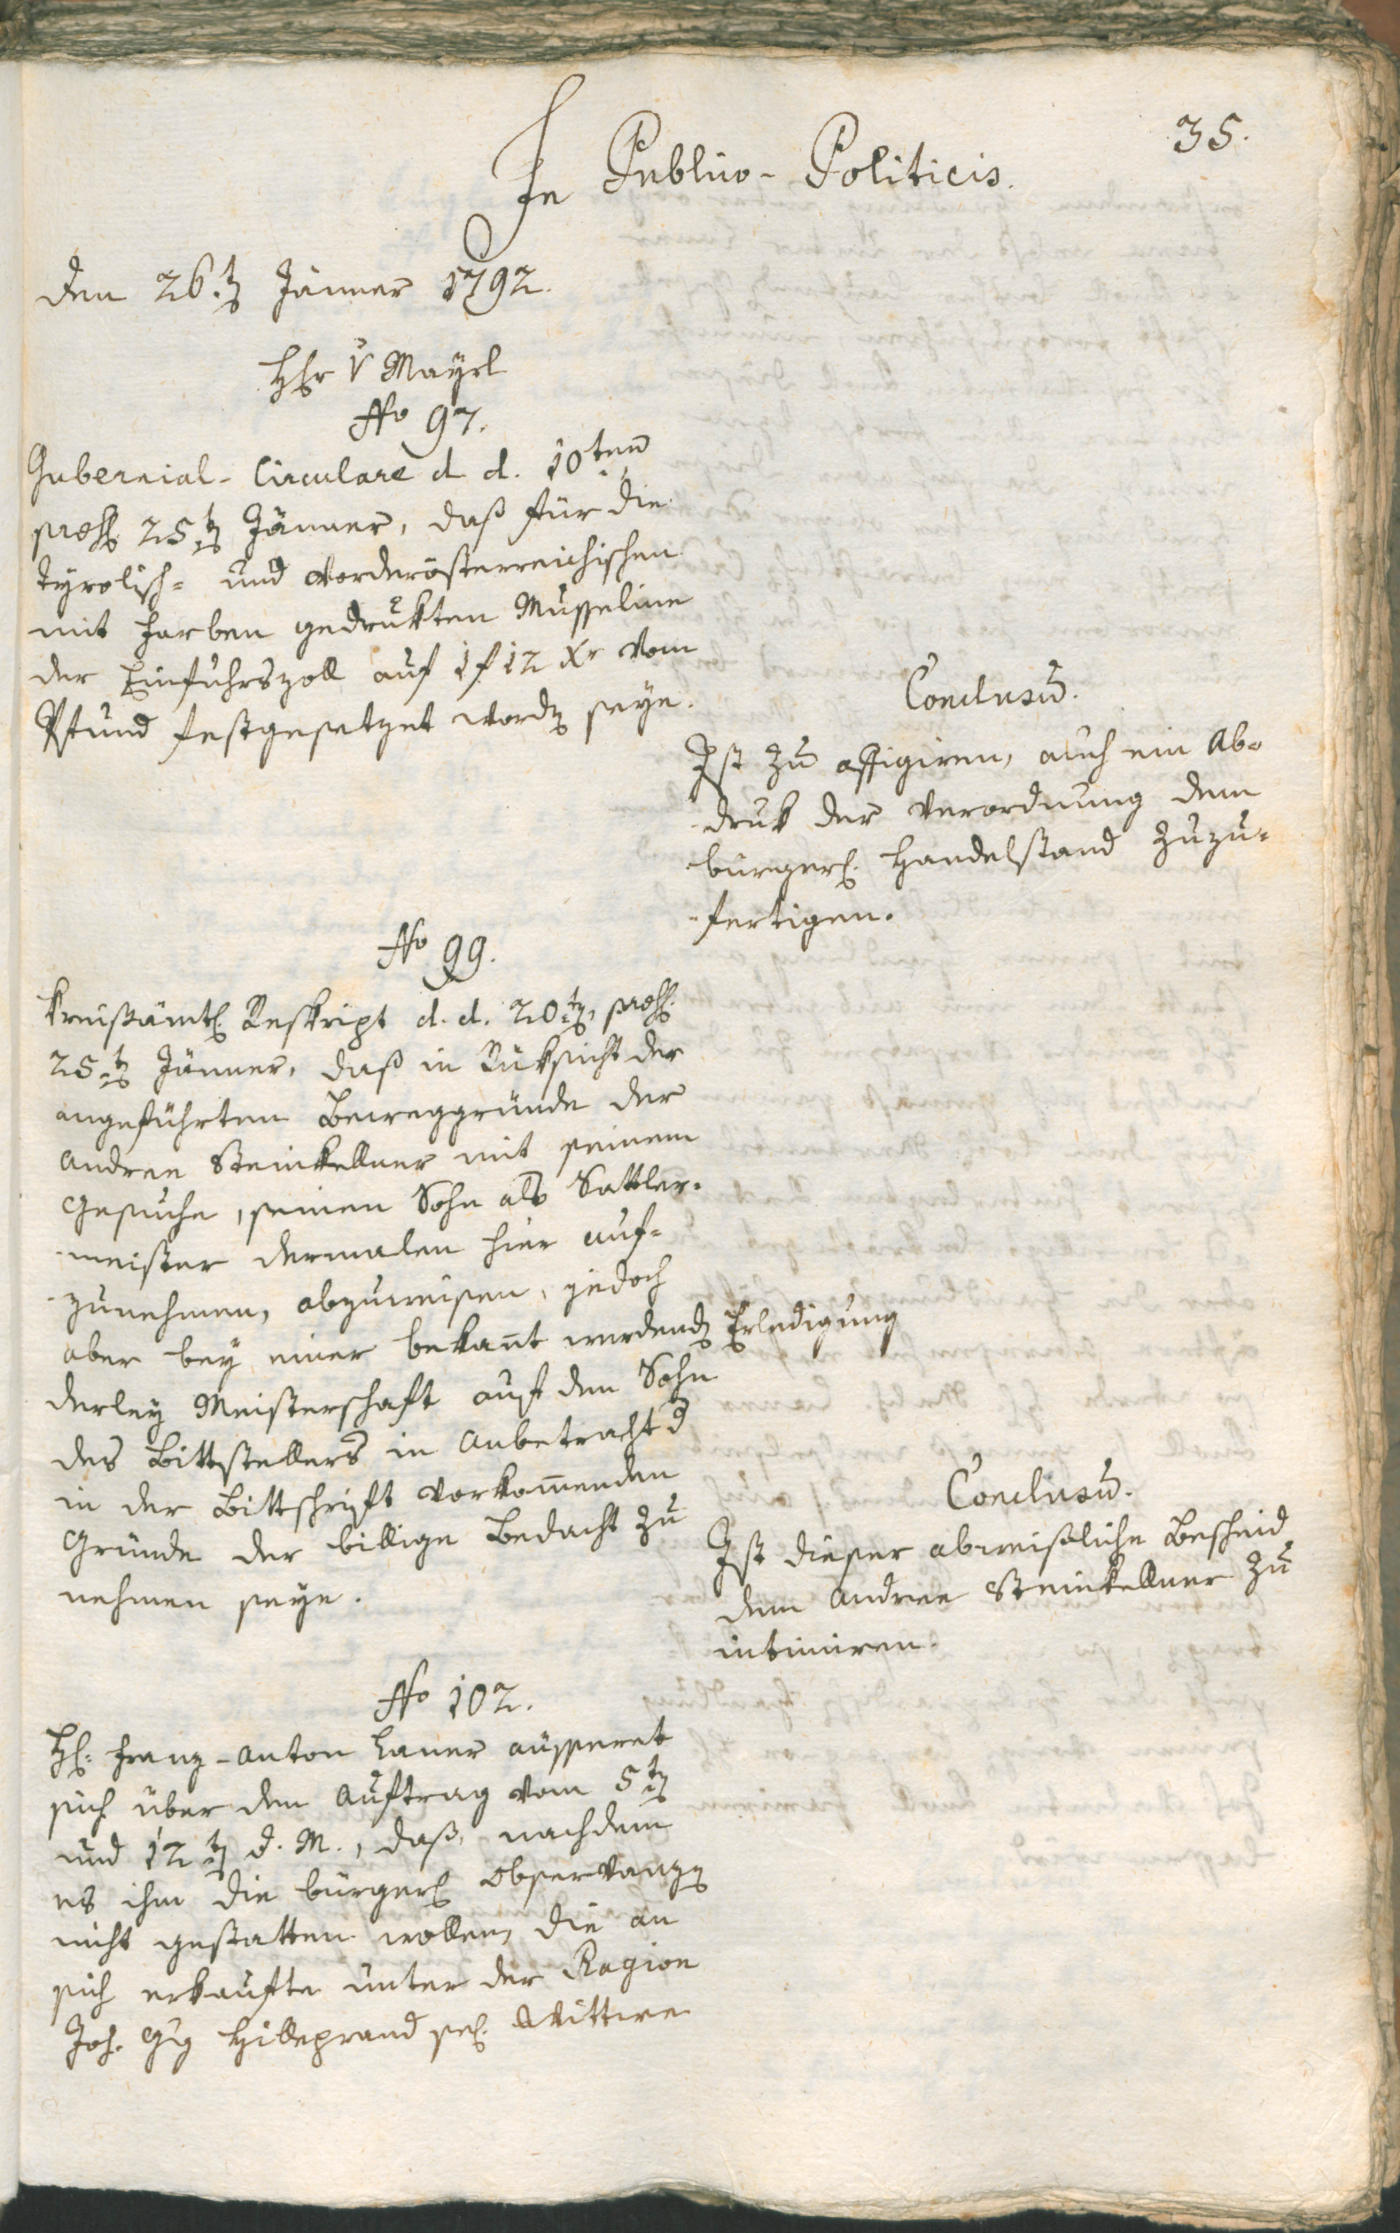 35.
In Publico-Politicis.
den 26.t Jänner 1792.
Hhr v Mayrl
No 97.
Gubernial-Circulare d. d. 10ten
25t Jänner, daß für die
tyrolisch- und vorderösterreichischen
mit Farben gedrukten Musseline
der Einfuhrszoll auf 1 f 12 Xr vom
Pfund festgesetzet word seye.
Conclusū.
Ist zu affigiren, auch ein Ab-
druk der Verordnung dem
bürgerl. Handelsstand zuzu-
fertigen.
No 99.
Kreißämtl. Reskript d. d. 20t,
25.t Jänner, daß in Rüksicht der
angeführten Beweggründe der
Andree Steinkellner mit seinem
Gesuche, seinen Sohn als Sattler-
meister dermalen hier auf-
zunehmen, abzuweisen, jedoch
aber bey einer bekañt werdend Erledigung
derley Meisterschaft auf den Sohn
des Bittstellers in Anbetracht d
in der Bittschrift vorkom̅enden
Gründe der billige Bedacht zu
nehmen seye.
Conclusū.
Ist dieser abweißliche Bescheid
dem Andree Steinkellner zu
intimiren.
No 102.
Hl: Franz-Anton Laner äusseret
sich über den Auftrag vom 5t
und 12t d. M., daß, nachdem
es ihm die bürgerl Observanz
nicht gestatten wollen, die an
sich erkaufte unter der Ragion
Joh. Gg Hilleprand sel. Wittwe